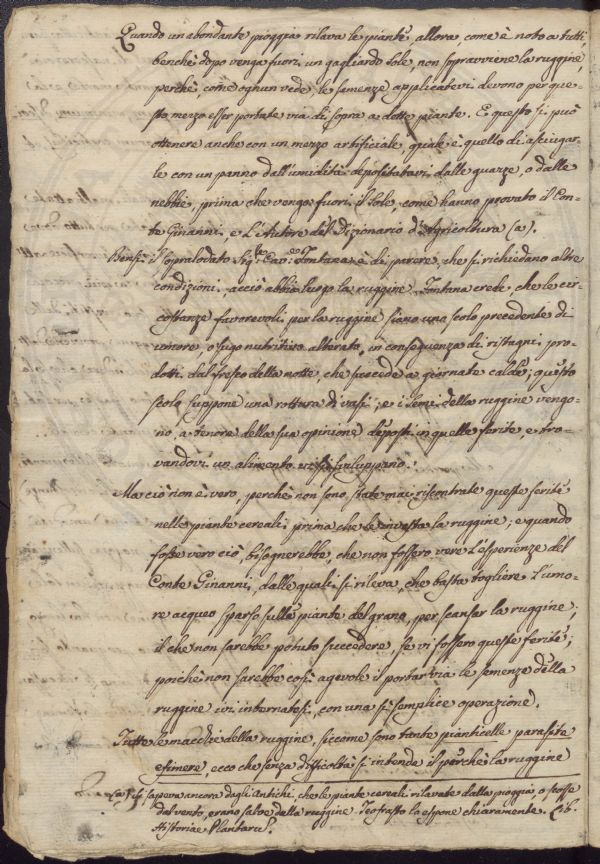 Quando un abondante pioggia rilava le piante, allora, come è noto a tutti,
benchè dopo venga fuori un gagliardo Sole, non sopravviene la ruggine,
perchè, come ognun vede, le semenze applicatevi devono per que-
sto mezzo esser portate via di sopra a dette piante. E questo si può
ottenere anche con un mezzo artificiale, quale è quello di asciugar-
le con un panno dall'umidità depositatavi dalle guazze, o dalle
nebbie, prima che venga fuori il Sole, come hanno provato il Con-
te Ginanni, e L'Autore del Dizionario d'Agricoltura (a).
Bensì il sopralodato Sig.re Cav.e Fontana è di parere, che si richiedano altre
condizioni, acciò abbia luogo la ruggine. Fontana crede, che le cir-
costanze favorevoli per la ruggine siano una scolo precedente di
umore, o sugo nutritivo alterato, in conseguenza di ristagni pro-
dotti dal fresco della notte, che succede a giornate calde; questo
scolo suppone una rottura di vasi; e i semi della ruggine vengo-
no, a tenore della sua opinione deposti in quelle ferite, e tro-
vandovi un alimento vi si sviluppano.
Ma ciò non è vero, perchè non sono state mai riscontrate queste ferite
nelle piante cereali prima che le investa la ruggine; e quando
fosse vero ciò, bisognerebbe, che non fossero vere L'esperienze del
Conte Ginanni, dalle quali si rileva, che basta togliere L'umo-
re acqueo sparso sulle piante del grano, per scansar la ruggine;
il che non sarebbe potuto succedere, se vi fossero queste ferite;
poichè non sarebbe così agevole il portar via le semenze della
ruggine ivi internatesi, con una sì semplice operazione.
Tutte le macchie della ruggine, siccome sono tante pianticelle parasite
efimere, ecco che senza difficoltà si intende il perchè la ruggine
(a) Si sapeva ancora dagli Antichi, che le piante cereali rilavate dalla pioggia, o scosse
dal vento, erano salve dalla ruggine. Teofrasto la espone chiaramente. Lib.
Historiae Plantaru.